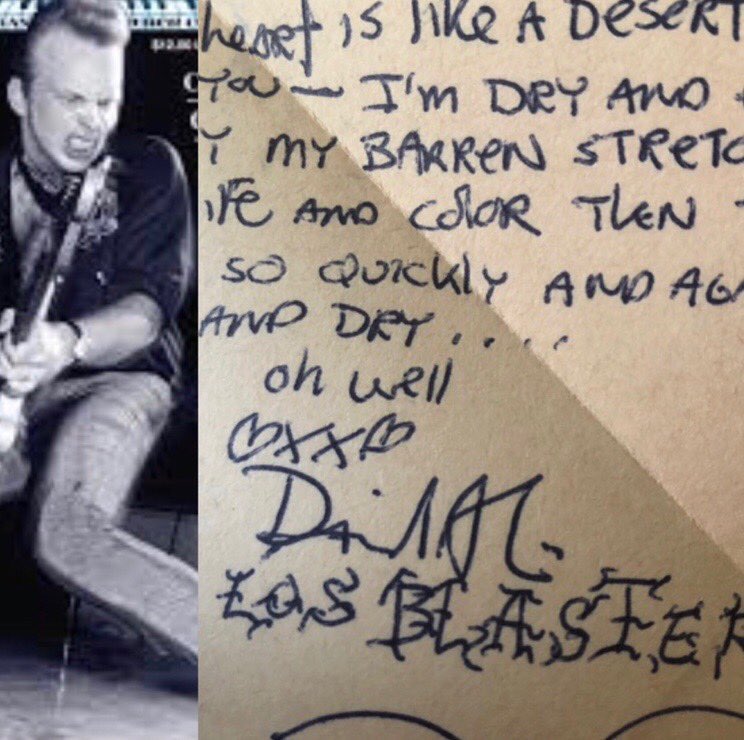 heart is like A Desert
You — I'm DRY AND
Y MY BARREN STRETC
ife AND COLOR THEN
so QUICKLY AND AGA
AND DRY.....
oh well
♡XX♡
LOS BLASTER